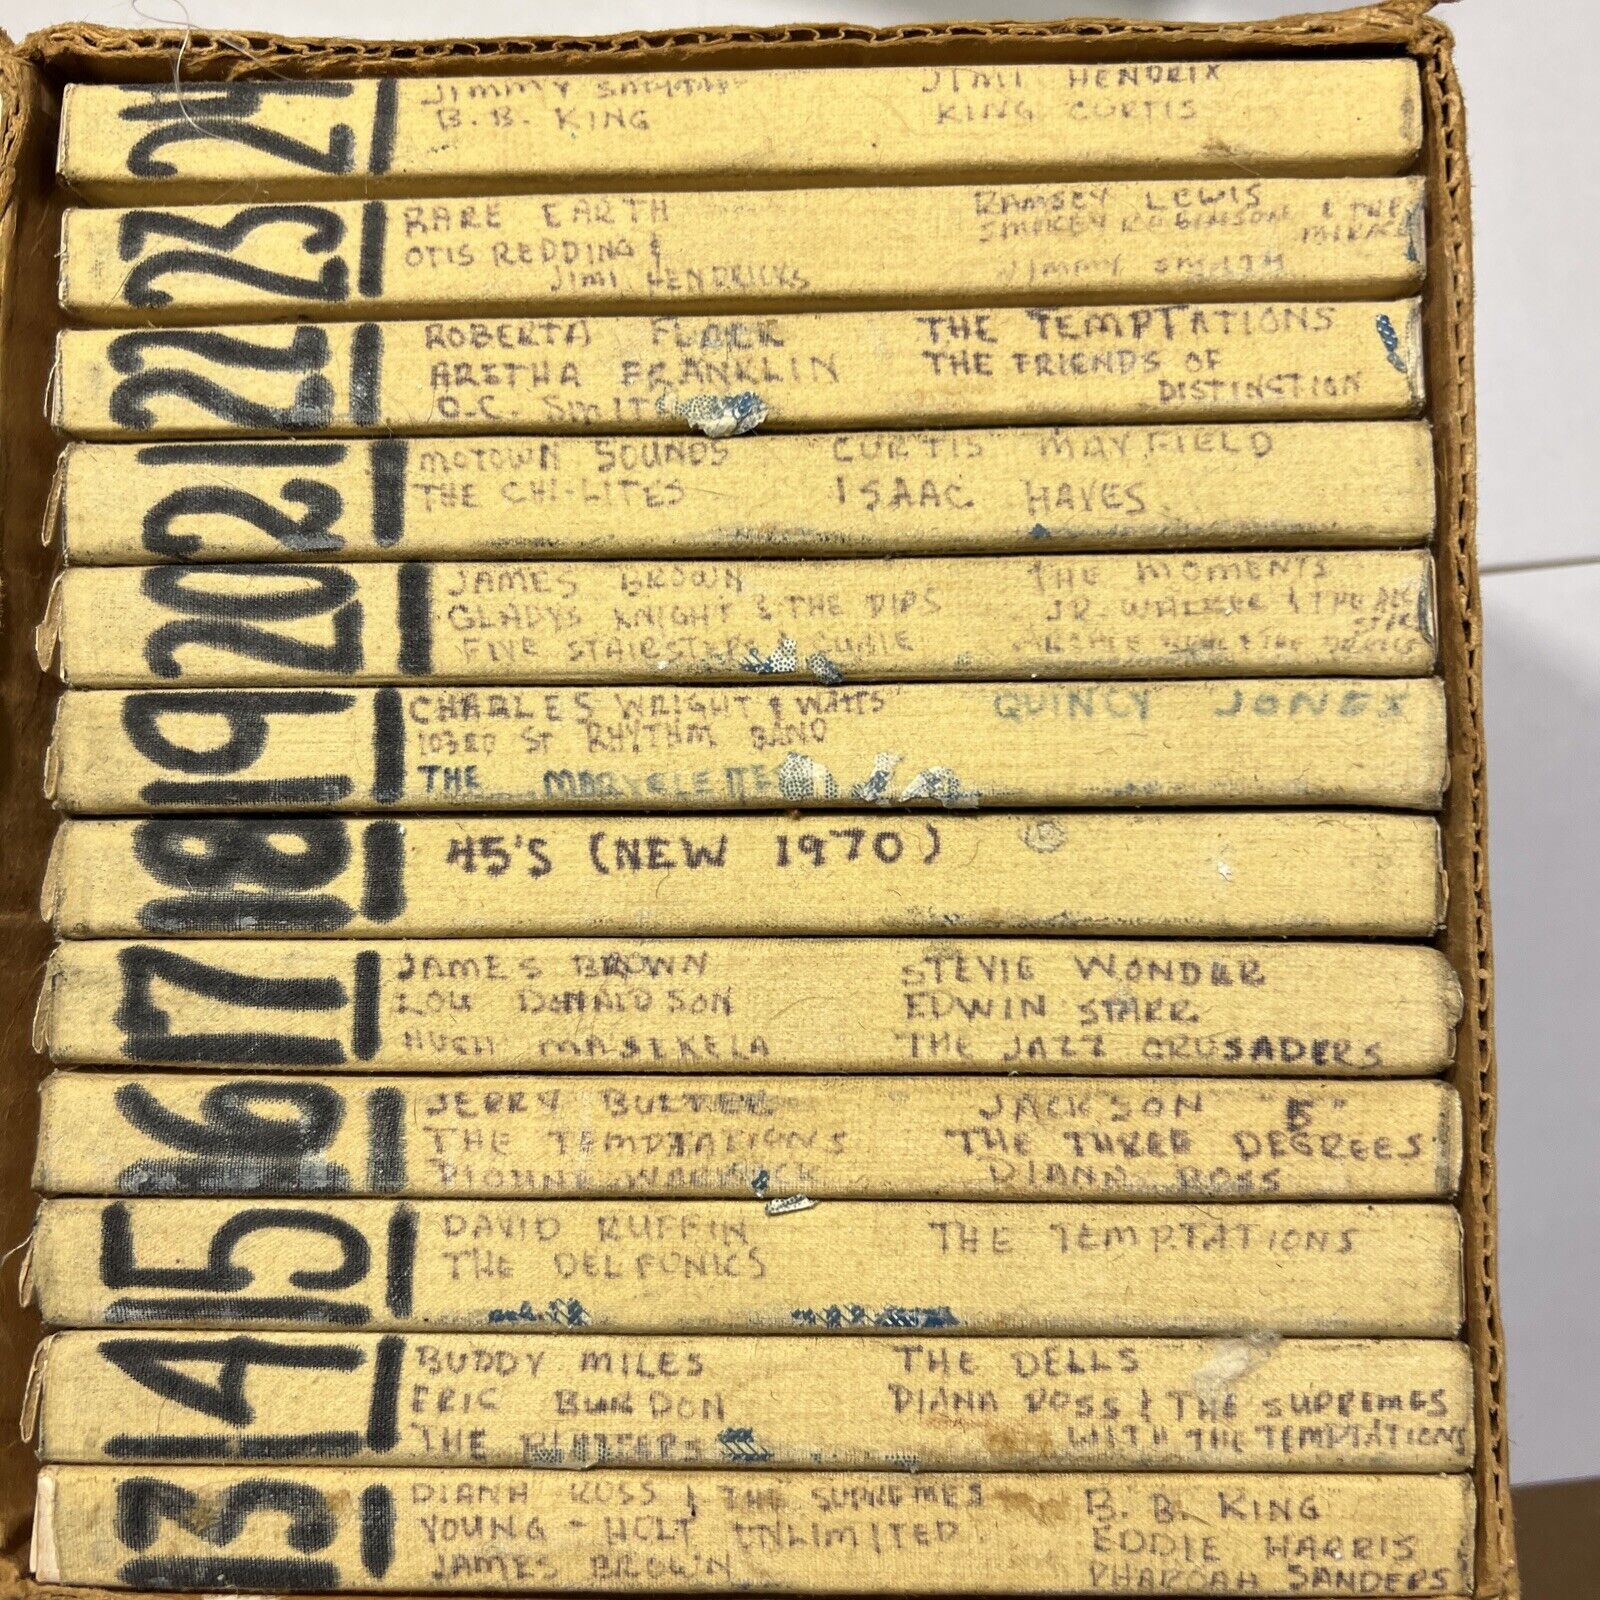 24
B. B. KING
JIMI HENDRIX
KING CURTIS
23
RARE EARTH
OTIS REDDING &
JIMI HENDRICKS
RAMSEY LEWIS
SMOKEY ROBINSON & THE
JIMMY SMITH
22
ROBERTA FLACK
ARETHA FRANKLIN
O.C. SMIT
THE TEMPTATIONS
THE FRIENDS OF
DISTINCTION
21
MOTOWN SOUNDS
THE CHI-LITES
CURTIS MAYFIELD
ISAAC HAYES
20
JAMES BROWN
GLADYS KNIGHT & THE PIPS
FIVE STAIRSTEPS & CUBIE
THE MOMENTS
JR. WALKER & THE ALL
STARS
19
CHARLES WRIGHT & WATTS
103RD ST RHYTHM BAND
THE MARVELETTE
QUINCY JONES
18
45'S (NEW 1970)
17
JAMES BROWN
LOU DONALDSON
HUGH MASEKELA
STEVIE WONDER
EDWIN STARR
THE JAZZ CRUSADERS
16
JERRY BUTLER
THE TEMPTATIONS
DIONNE WARWICK
JACKSON "5"
THE THREE DEGREES
DIANA ROSS
15
DAVID RUFFIN
THE DELFONICS
THE TEMPTATIONS
14
BUDDY MILES
ERIC BURDON
THE PLATTERS
THE DELLS
DIANA ROSS & THE SUPREMES
WITH THE TEMPTATIONS
13
DIANA ROSS & THE SUPREMES
YOUNG-HOLT UNLIMITED
JAMES BROWN
B. B. KING
EDDIE HARRIS
PHAROAH SANDERS